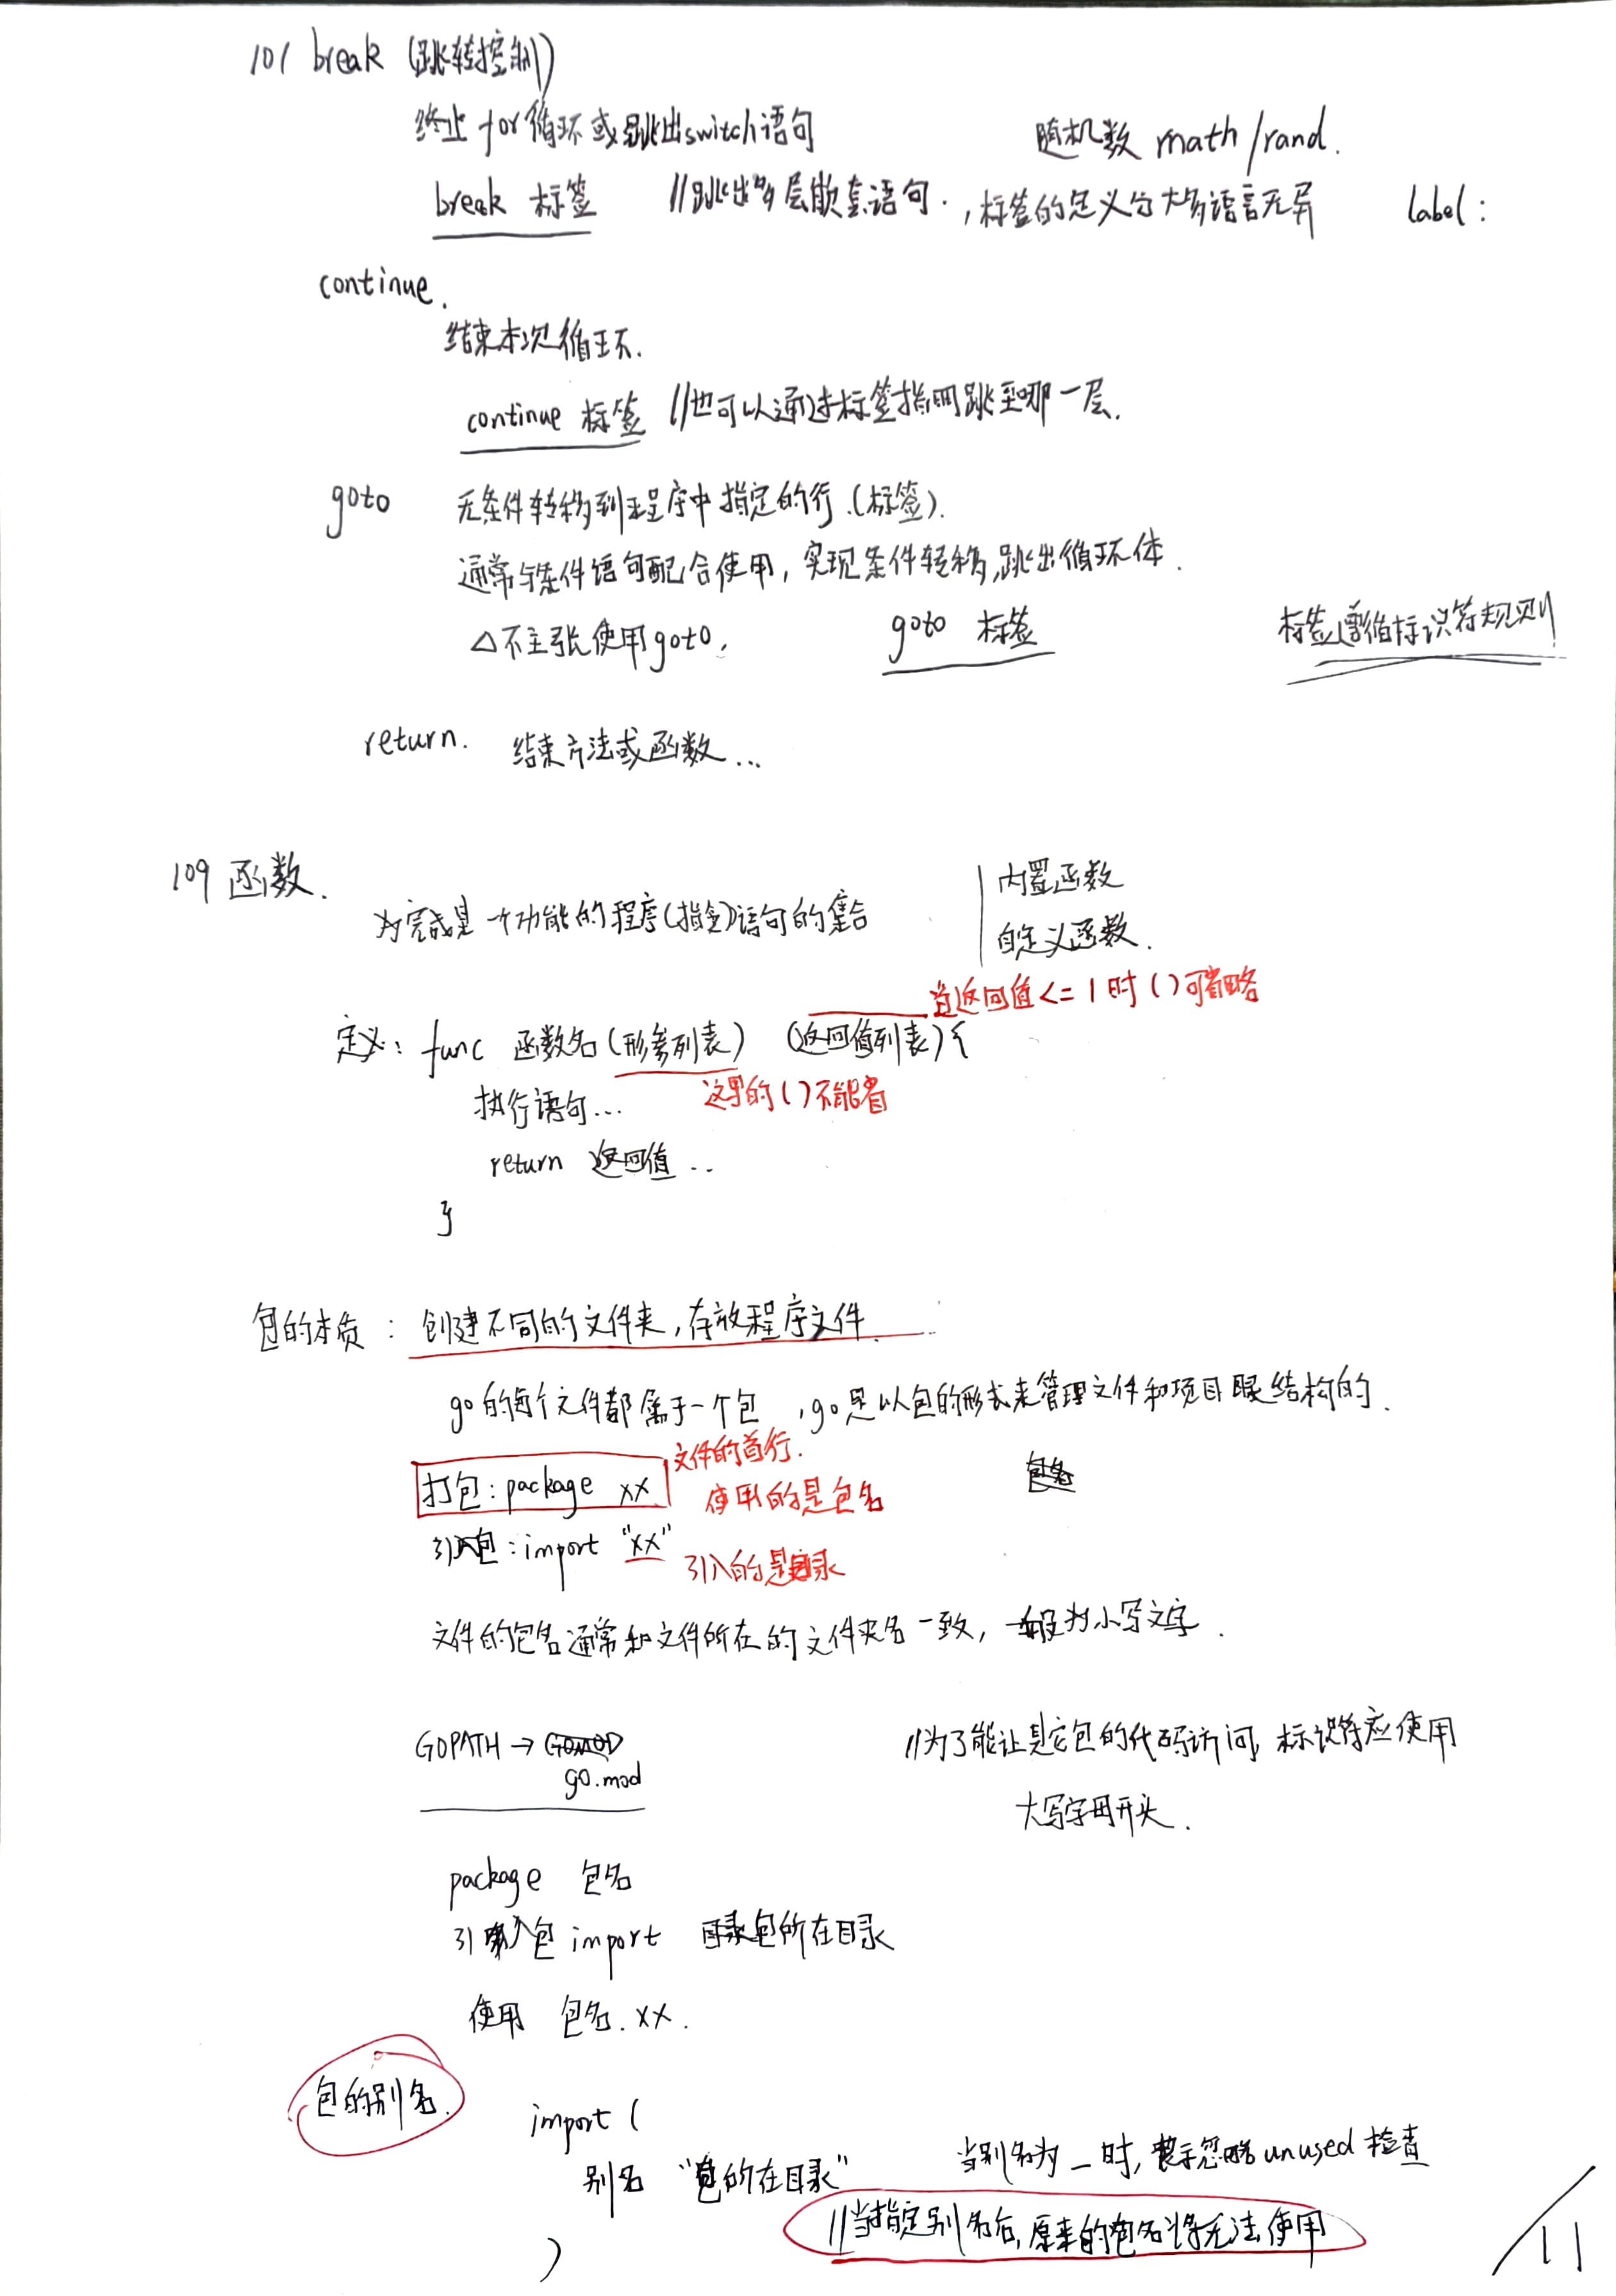 101 break (跳转控制)
终止for循环或跳出switch语句
随机数 math/rand.
break 标签 //跳出多层嵌套语句. ,标签的定义与大多语言无异 label:
continue.
结束本次循环.
continue 标签 //也可以通过标签指明跳至哪一层.
goto 无条件转移到程序中指定的行.(标签).
通常与条件语句配合使用,实现条件转移,跳出循环体.
△不主张使用goto. goto 标签 标签遵循标识符规则
return. 结束方法或函数...
109 函数.
为完成某一个功能的程序(指令)语句的集合
内置函数
自定义函数.
当返回值<=1时()可省略
定义: func 函数名(形参列表) (返回值列表){
这里的()不能省
执行语句...
return 返回值..
}
包的本质: 创建不同的文件夹,存放程序文件.
go的每个文件都属于一个包 ,go是以包的形式来管理文件和项目目录结构的.
打包: package xx
文件的首行.
使用的是包名
引入包: import "xx"
引入的是目录
文件的包名通常和文件所在的文件夹名一致, 一般为小写文字.
GOPATH → GOMOD
go.mod
//为了能让其它包的代码访问, 标识符应使用
大写字母开头.
package 包名
引入包 import 包所在目录
使用 包名.xx.
包的别名.
import (
别名 "包的在目录"
当别名为_时,表示忽略unused检查
//当指定别名后,原来的包名将无法使用
)
11